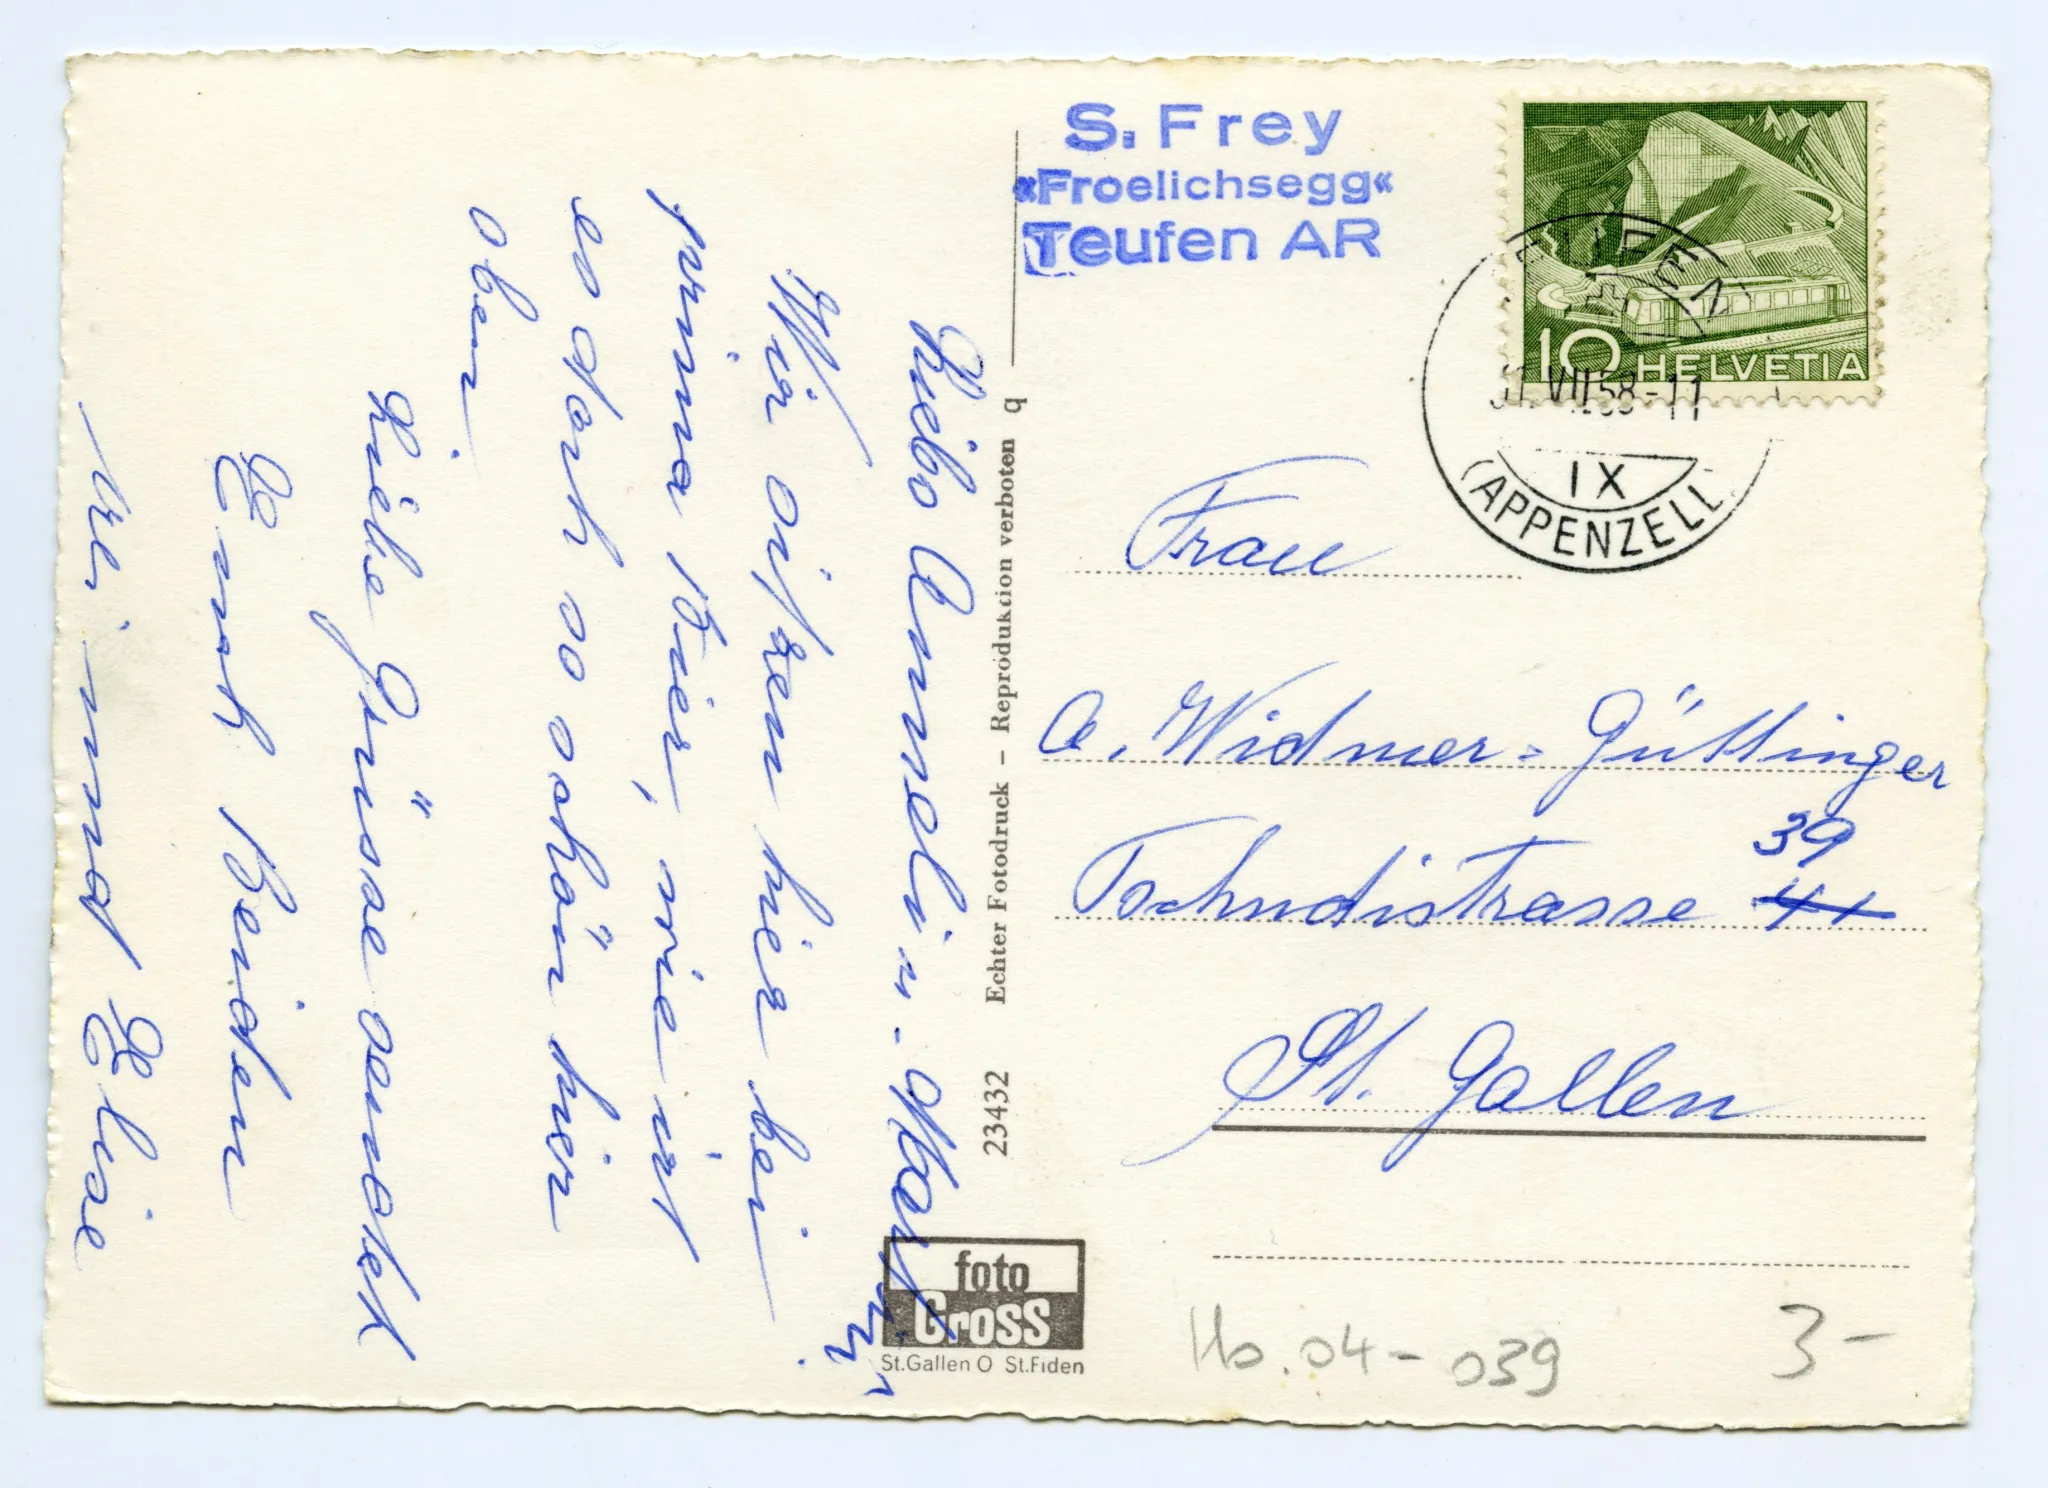 Liebo Anneli u. Mart
Wir sitzen hier bei
prima Bier, wie ist
es doch so schön hier
oben
Liebe Grüsse sendet
Euch Beiden
Ueli und Elsie
S. Frey
«Froelichsegg«
Teufen AR
10 HELVETIA
TEUFEN
31. VII 58-11
IX
(APPENZELL)
Frau
A. Widmer-Güttinger
39
Tschudistrasse 41
St. Gallen
23432 Echter Fotodruck – Reproduktion verboten q
foto
Gross
St.Gallen O St.Fiden
Ho.04-039
3-